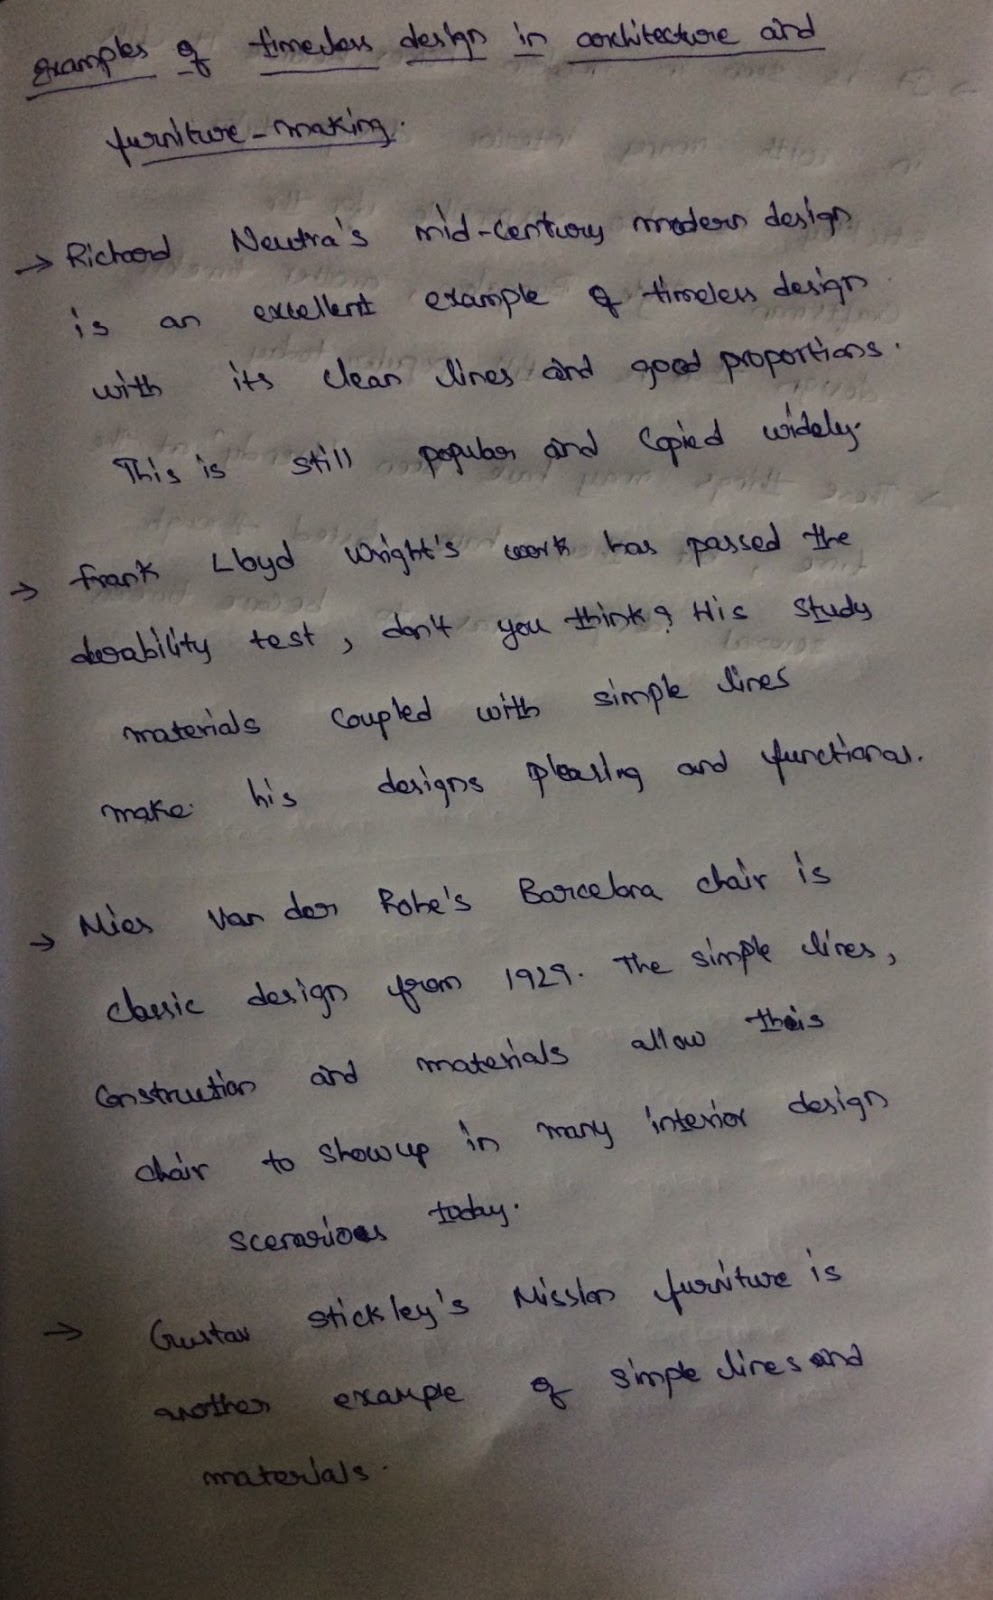 examples of timeless design in architecture and
furniture-making.
→ Richard Neutra's mid-century modern design
is an excellent example of timeless design
with its clean lines and good proportions.
This is still popular and copied widely.
→ frank Lloyd wright's work has passed the
durability test, don't you think? His study
materials coupled with simple lines
make his designs pleasing and functional.
→ Mies Van der Rohe's Barcelona chair is
classic design from 1929. The simple lines,
construction and materials allow this
chair to show up in many interior design
scenarioes today.
→ Gustav stickley's Mission furniture is
another example of simple lines and
materials.